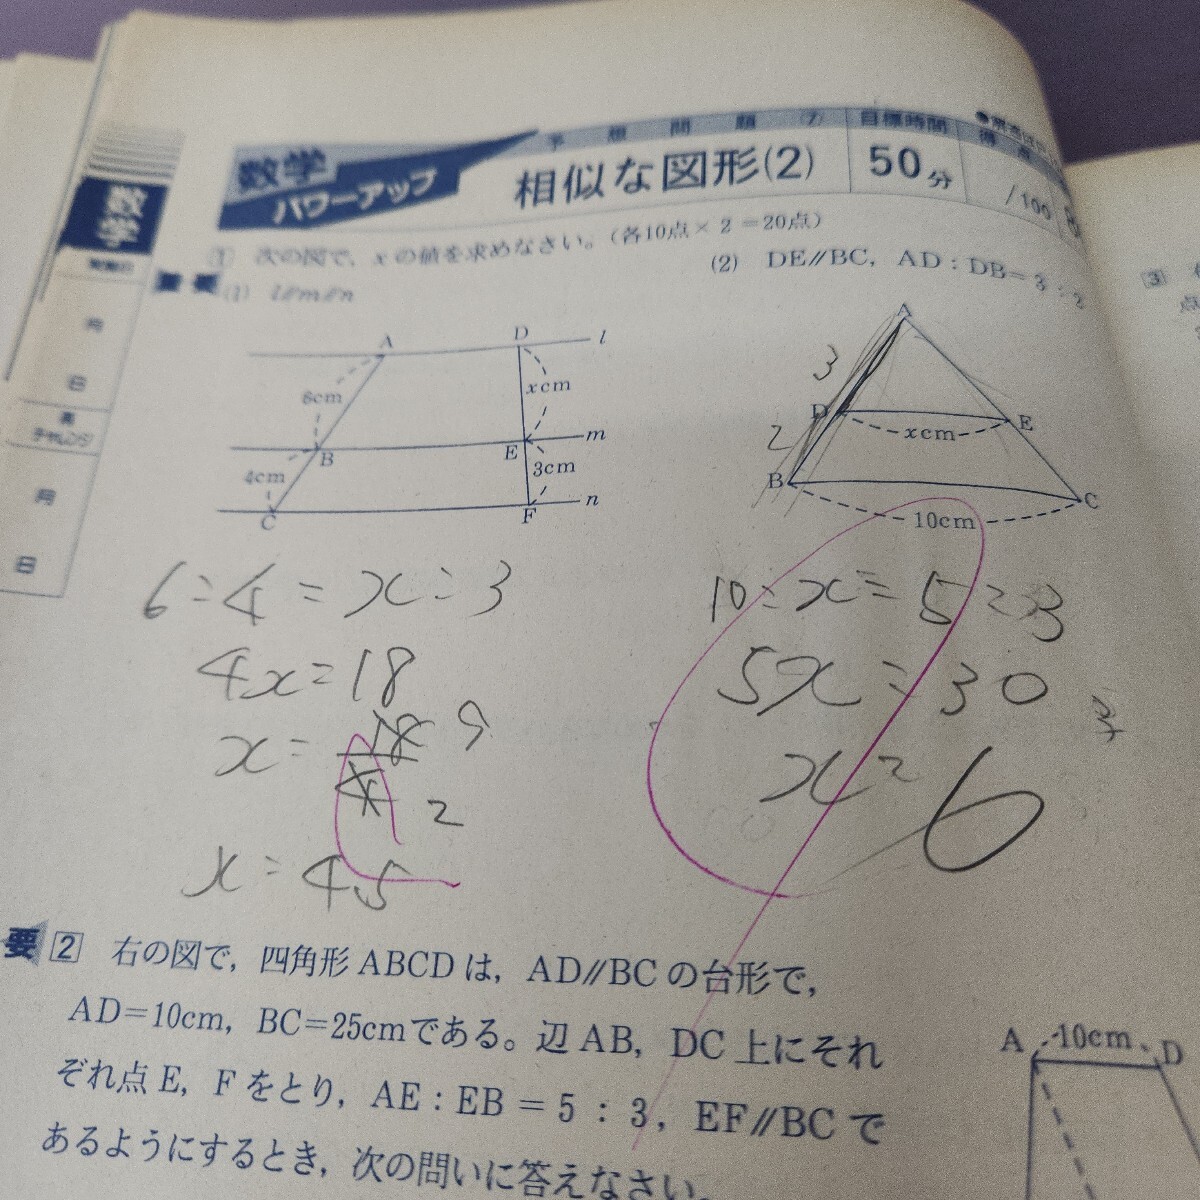 予想問題(7)
目標時間
得点
数学
パワーアップ
相似な図形(2)
50分
/100
数学
月
日
再チャレンジ
月
日
1 次の図で，xの値を求めなさい。(各10点×2＝20点)
重要
(1) l∥m∥n
(2) DE∥BC，AD：DB＝3：2
A
D
l
xcm
B
E
m
4cm
3cm
C
F
n
A
3
D
E
xcm
2
B
C
10cm
6:4=x:3
4x=18
x=18/4 9 2
x=4.5
10:x=5:3
5x=30
x=6
要 2 右の図で，四角形ABCDは，AD∥BCの台形で，
AD＝10cm，BC＝25cmである。辺AB，DC上にそれ
ぞれ点E，Fをとり，AE：EB＝5：3，EF∥BCで
あるようにするとき，次の問いに答えなさい。
A
10cm
D
3
点